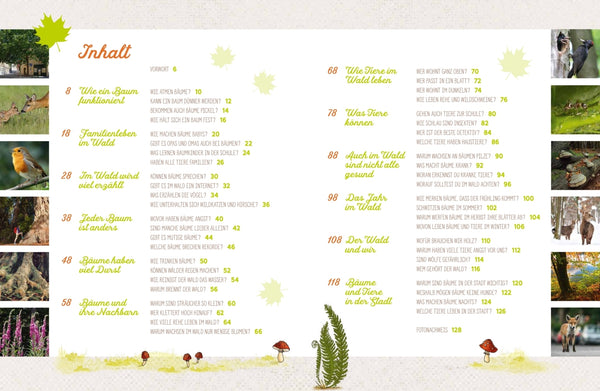 Inhalt
VORWORT 6
8 Wie ein Baum funktioniert
WIE ATMEN BÄUME? 10
KANN EIN BAUM DÜNNER WERDEN? 12
BEKOMMEN AUCH BÄUME PICKEL? 14
WIE HÄLT SICH EIN BAUM FEST? 16
18 Familienleben im Wald
WIE MACHEN BÄUME BABYS? 20
GIBT ES OPAS UND OMAS AUCH BEI BÄUMEN? 22
WAS LERNEN BAUMKINDER IN DER SCHULE? 24
HABEN ALLE TIERE FAMILIEN? 26
28 Im Wald wird viel erzählt
KÖNNEN BÄUME SPRECHEN? 30
GIBT ES IM WALD EIN INTERNET? 32
WAS ERZÄHLEN DIE VÖGEL? 34
WIE UNTERHALTEN SICH WILDKATZEN UND HIRSCHE? 36
38 Jeder Baum ist anders
WOVOR HABEN BÄUME ANGST? 40
SIND MANCHE BÄUME LIEBER ALLEIN? 42
GIBT ES MUTIGE BÄUME? 44
WELCHE BÄUME BRECHEN REKORDE? 46
48 Bäume haben viel Durst
WIE TRINKEN BÄUME? 50
KÖNNEN WÄLDER REGEN MACHEN? 52
WIE REINIGT DER WALD DAS WASSER? 54
WARUM BRENNT DER WALD? 56
58 Bäume und ihre Nachbarn
WARUM SIND STRÄUCHER SO KLEIN? 60
WER KLETTERT HOCH HINAUF? 62
WIE VIELE REHE LEBEN IM WALD? 64
WARUM WACHSEN IM WALD NUR WENIGE BLUMEN? 66
68 Wie Tiere im Wald leben
WER WOHNT GANZ OBEN? 70
WER PASST IN EIN BLATT? 72
WER WOHNT IM DUNKELN? 74
WIE LEBEN REHE UND WILDSCHWEINE? 76
78 Was Tiere können
GEHEN AUCH TIERE ZUR SCHULE? 80
WIE SCHLAU SIND INSEKTEN? 82
WER IST DER BESTE DETEKTIV? 84
WELCHE TIERE HABEN HAUSTIERE? 86
88 Auch im Wald sind nicht alle gesund
WARUM WACHSEN AN BÄUMEN PILZE? 90
WAS MACHT BÄUME KRANK? 92
WORAN ERKENNST DU KRANKE TIERE? 94
WORAUF SOLLTEST DU IM WALD ACHTEN? 96
98 Das Jahr im Wald
WIE MERKEN BÄUME, DASS DER FRÜHLING KOMMT? 100
SCHWITZEN BÄUME IM SOMMER? 102
WARUM WERFEN BÄUME IM HERBST IHRE BLÄTTER AB? 104
WOVON LEBEN BÄUME UND TIERE IM WINTER? 106
108 Der Wald und wir
WOFÜR BRAUCHEN WIR HOLZ? 110
WARUM HABEN VIELE TIERE ANGST VOR UNS? 112
SIND WÖLFE GEFÄHRLICH? 114
WEM GEHÖRT DER WALD? 116
118 Bäume und Tiere in der Stadt
WARUM SIND BÄUME IN DER STADT WICHTIG? 120
WESHALB MÖGEN BÄUME KEINE HUNDE? 122
WAS MACHEN BÄUME NACHTS? 124
WELCHE TIERE LEBEN IN DER STADT? 126
FOTONACHWEIS 128